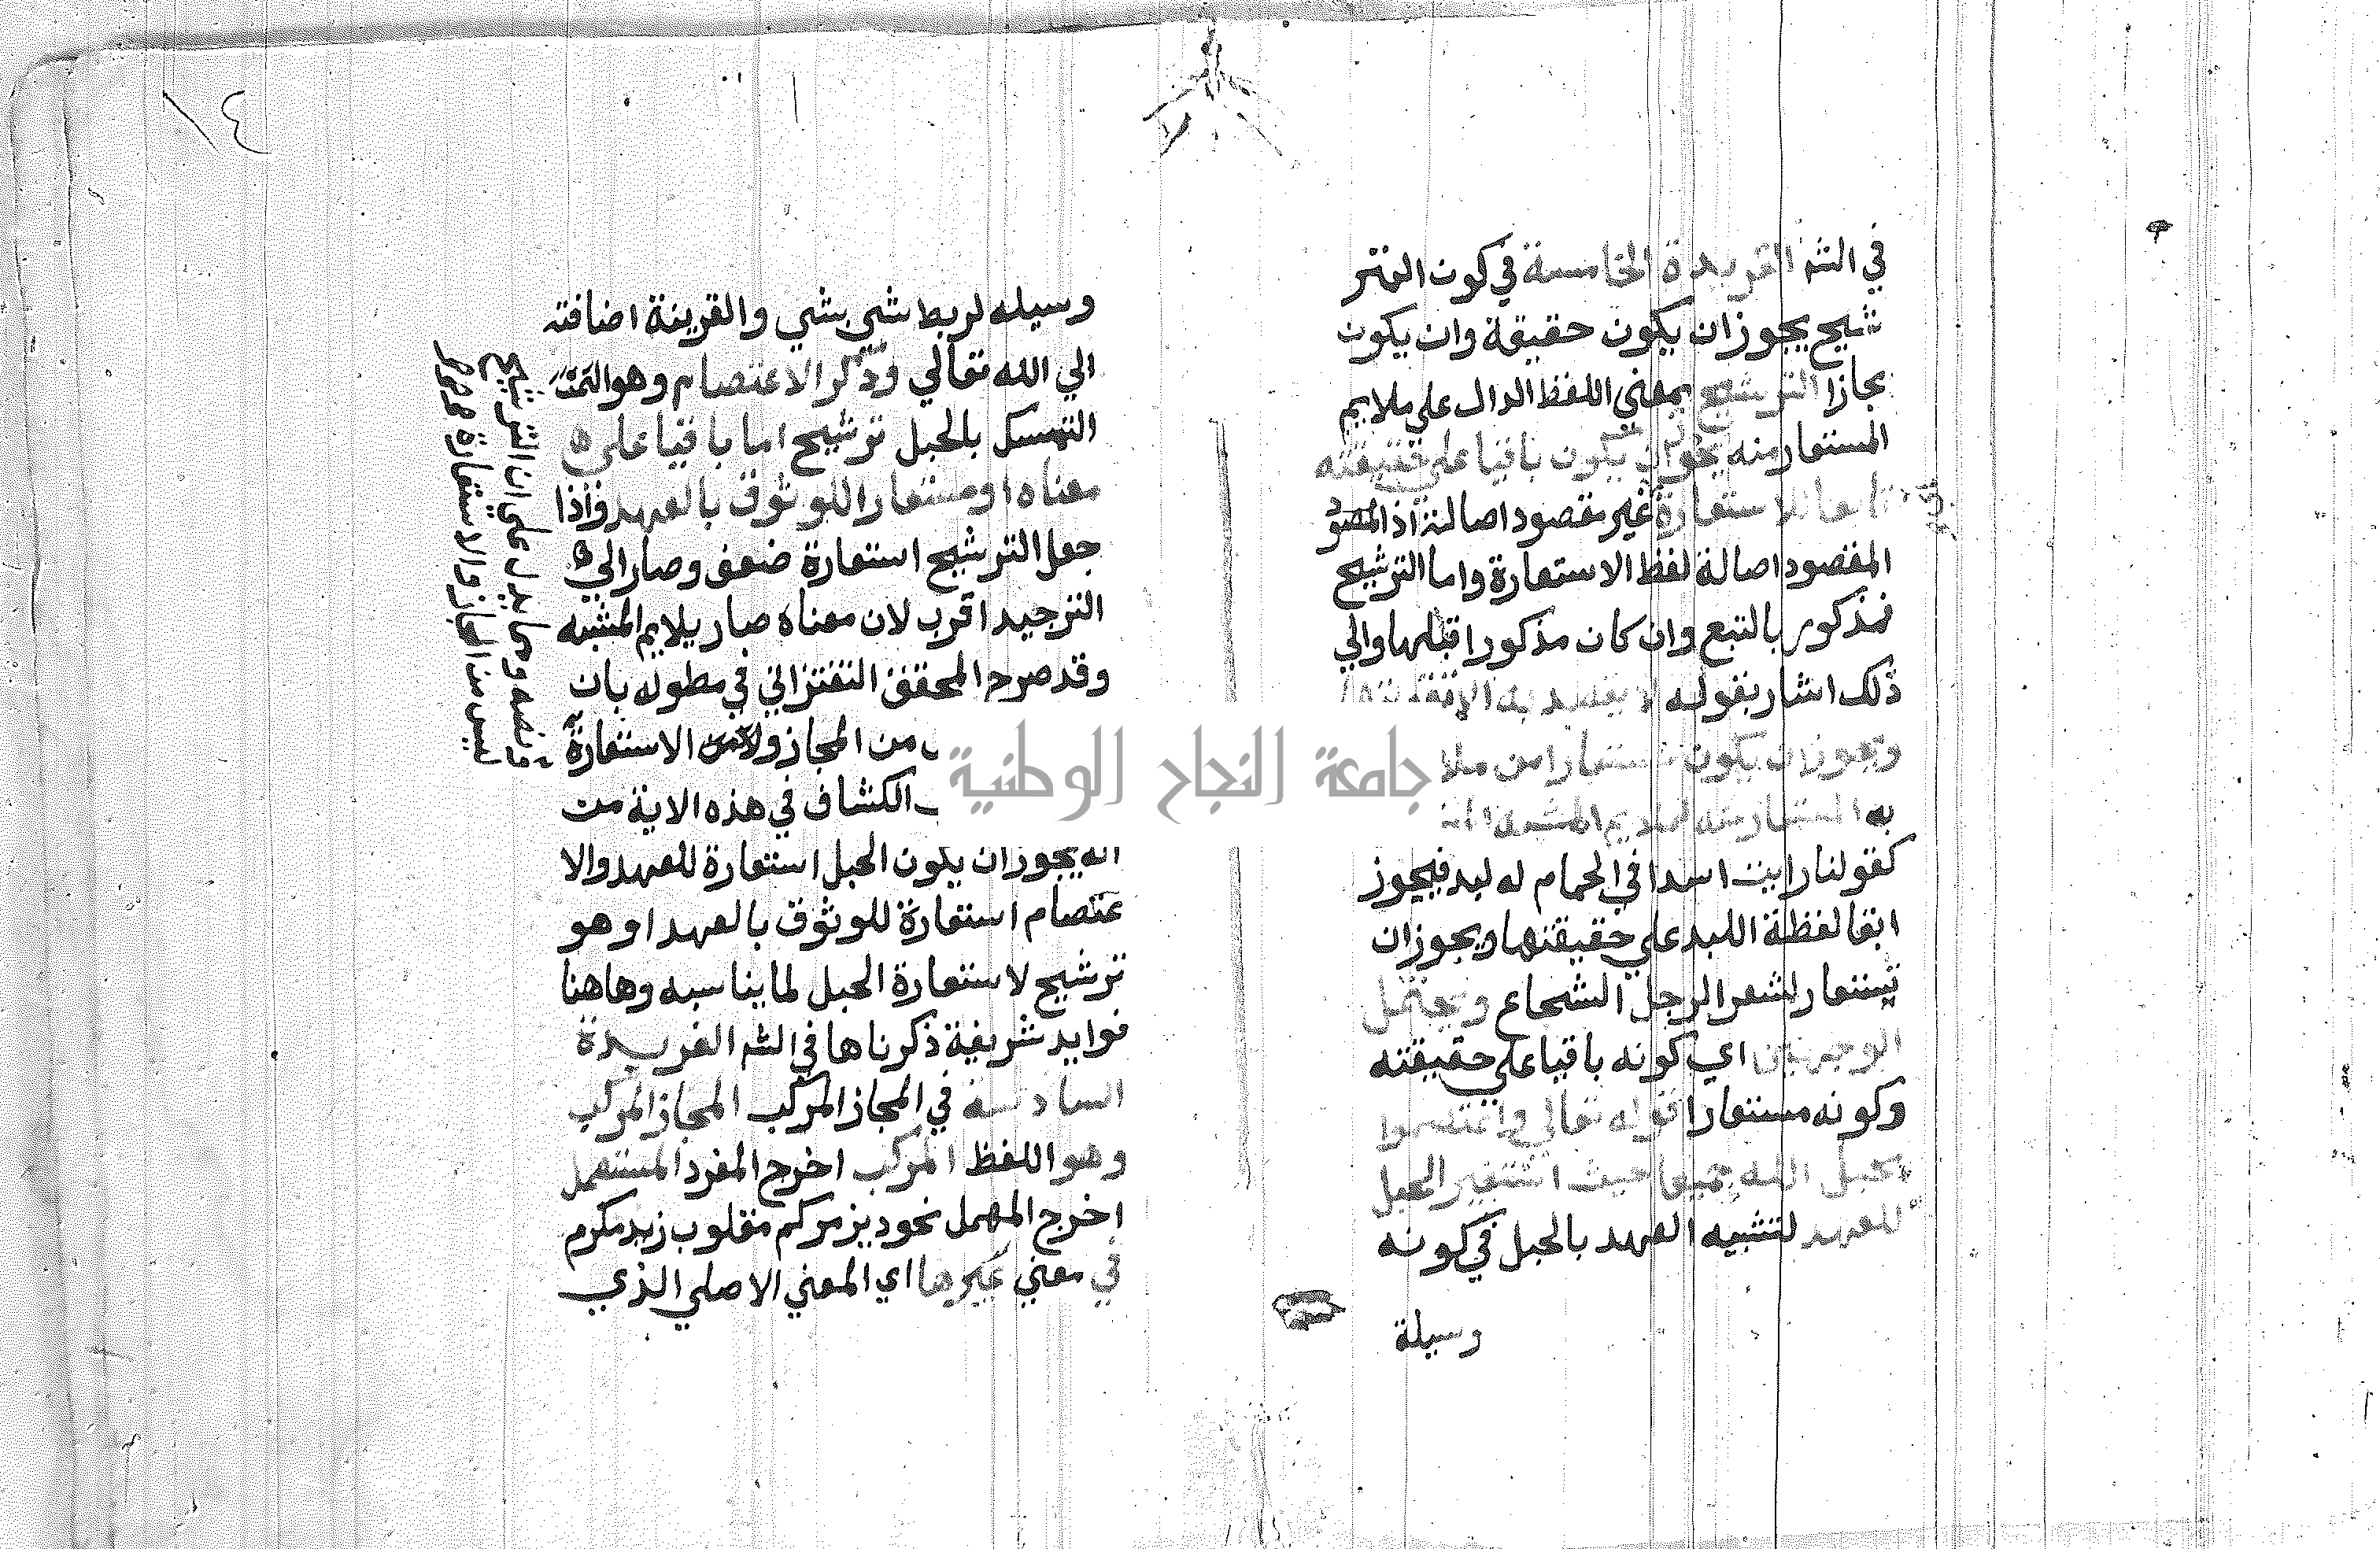 في الشر الفريدة الخامسة في كون التر
شيح يجوز ان يكون حقيقة وان يكون
مجازا الترشيح بمعني اللفظ الدال علي ملايم
المستعار منه يجوز ان يكون باقيا علي حقيقته
تابعا للاستعارة غير مقصود اصالة اذ المقصو
المقصود اصالة لفظ الاستعارة واما الترشيح
فمذكور بالتبع وان كان مذكورا قبلها والي
ذلك اشار بقوله لا يقصد به الا تقويتها
ويجوز ان يكون مستعارا من ملا
به المستعار منه لملايم المشبه
كقولنا رايت اسدا في الحمام له لبد فيجوز
ابقا لفظة اللبد علي حقيقتها ويجوز ان
تستعار لشعر الرجل الشجاع ويحتمل
الوجهين اي كونه باقيا علي حقيقته
وكونه مستعارا قوله تعالي واعتصموا
بحبل الله جميعا حيث استعير الحبل
للعهد لتشبيه العهد بالحبل في كونه
وسيلة
١٤
وسيله لربط شي بشي والقرينة اضافته
الي الله تعالي وذكر الاعتصام وهو التمـ
التمسك بالحبل ترشيح اما باقيا علي
معناه او مستعارا للوثوق بالعهد واذا
جعل الترشيح استعارة ضعف وصار الي
التجريد اقرب لان معناه صار يلايم المشبه
وقد صرح المحقق التفتزاني في مطوله بان
من المجاز ولا من الاستعارة
الكشاف في هذه الاية من
انه يجوز ان يكون الحبل استعارة للعهد والا
عتصام استعارة للوثوق بالعهد او هو
ترشيح لاستعارة الحبل لما يناسبه وهاهنا
فوايد شريفة ذكرناها في الشر الفريدة
السادسة في المجاز المركب المجاز المركب
وهو اللفظ المركب اخرج المفرد المستعمل
اخرج المهمل نحو ديز مركم مقلوب زيد مكرم
في معني غيرها اي المعني الاصلي الذي
ما نصه ومما يدل علي ان الترشيح
ليس من المجاز والاستعارة
جامعة النجاح الوطنية